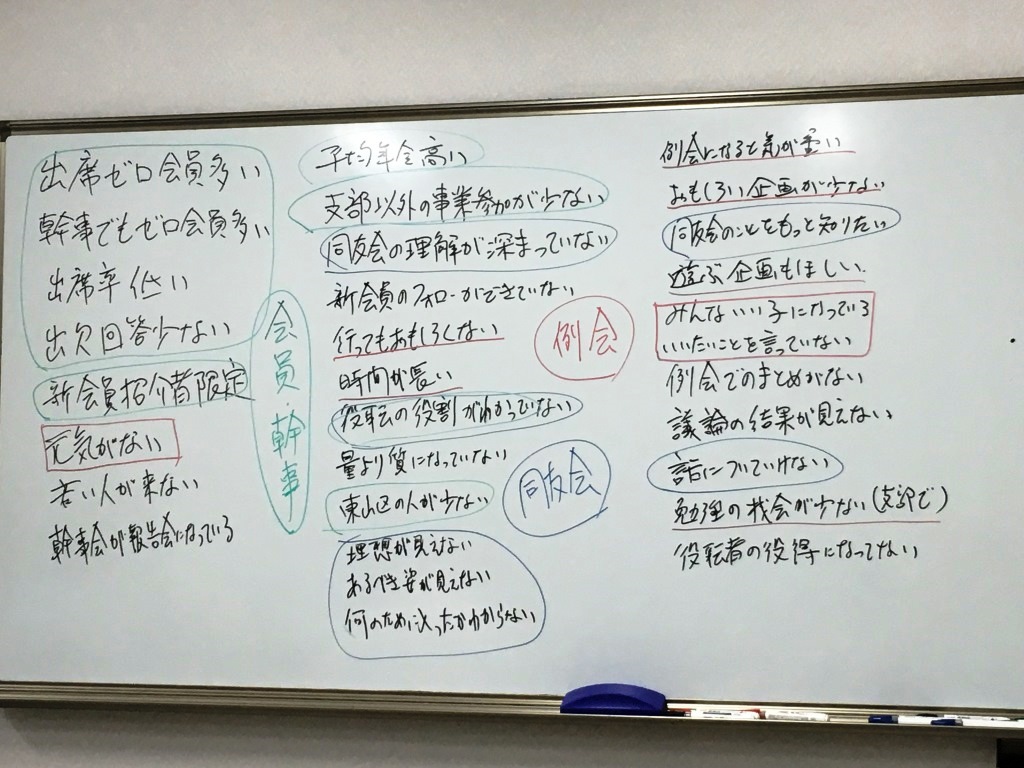 出席ゼロ会員多い
幹事でもゼロ会員多い
出席率低い
出欠回答少ない
新会員招介者限定
元気がない
若い人が来ない
幹事会が報告会になっている
会員・幹事
平均年令高い
支部以外の事業参加が少ない
同友会の理解が深まっていない
新会員のフォローができていない
行ってもおもしろくない
時間が長い
役職の役割がわかっていない
量より質になっていない
東山区の人が少ない
理想が見えない
あるべき姿が見えない
何のために入ったかわからない
例会
同友会
例会になると気が重い
おもしろい企画が少ない
同友会のことをもっと知りたい
遊ぶ企画もほしい
みんないい子になっている
いいたいことを言っていない
例会でのまとめがない
議論の結果が見えない
話についていけない
勉強の機会が少ない(支部で)
役職者の役得になってない